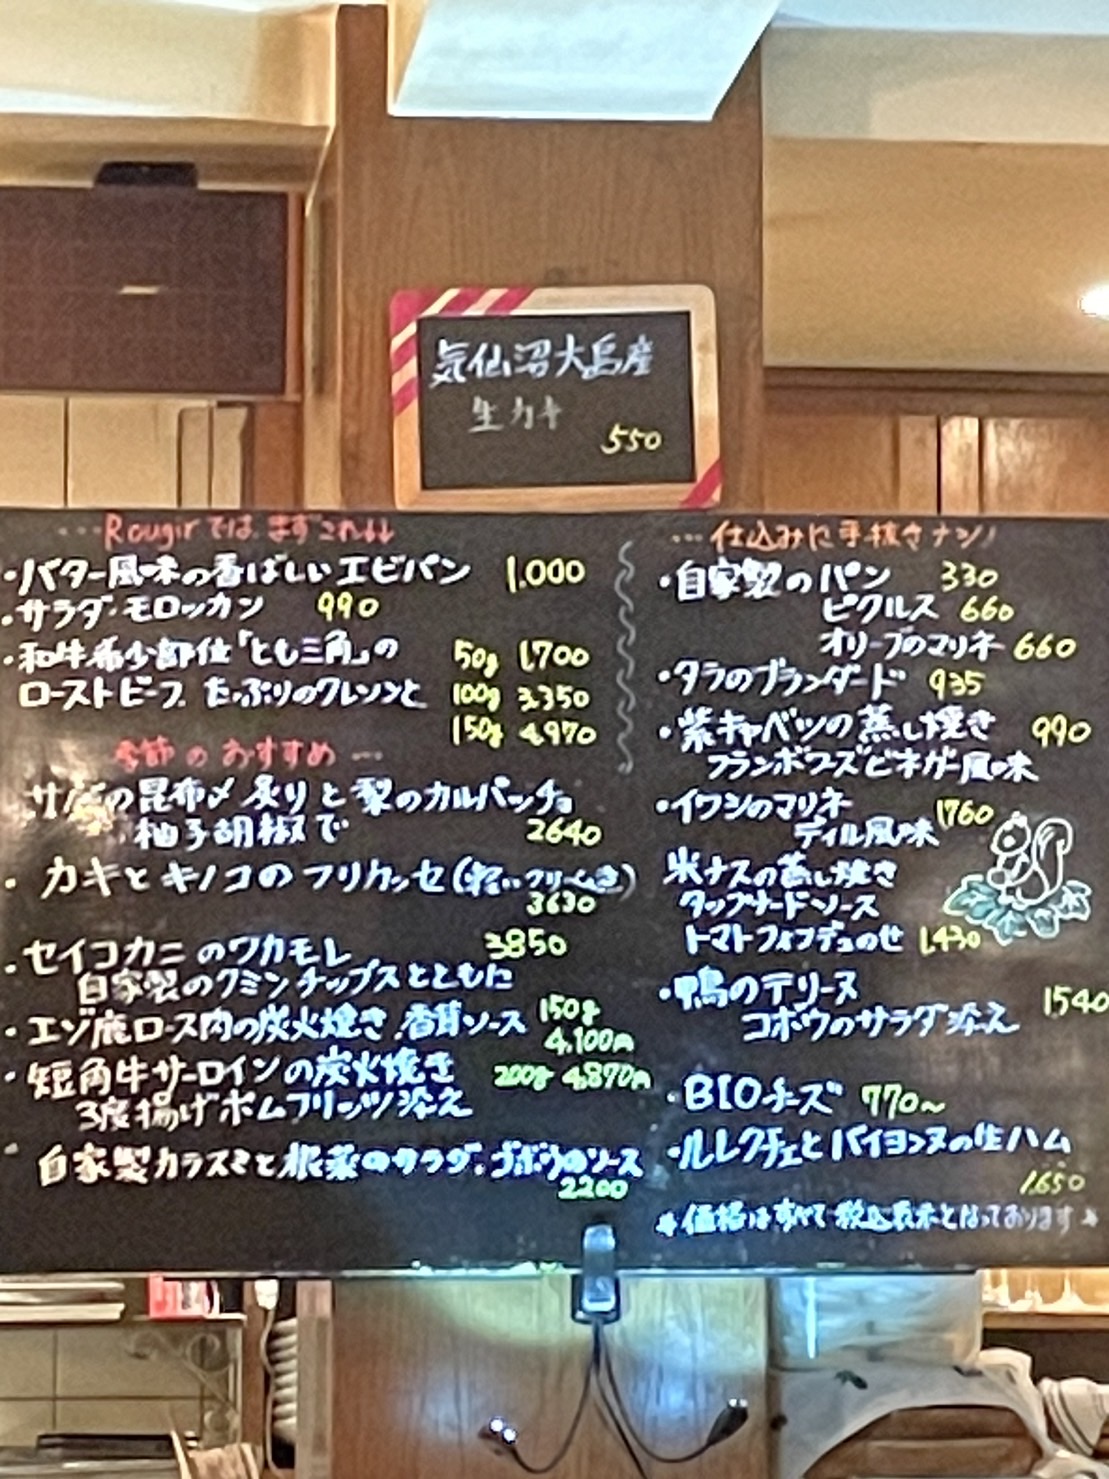 気仙沼大島産
生カキ
550
Rougirでは、まずこれ↓↓
・バター風味の香ばしいエビパン 1,000
・サラダ・モロッカン 990
・和牛希少部位「とも三角」の 50g 1,700
ローストビーフ たっぷりのクレソンと 100g 3,350
150g 4,970
季節のおすすめ
の昆布〆炙りと梨のカルパッチョ
柚子胡椒で 2640
・カキとキノコのフリカッセ
3630
・セイコカニのワカモレ 3850
自家製のクミンチップスとともに
・エゾ鹿ロース肉の炭火焼き、香茸ソース 150g
4,100
・短角牛サーロインの炭火焼き 200g 4,870
3度揚げポムフリッツ添え
自家製カラスミと根菜のサラダ、ゴボウのソース
2200
仕込みに手抜きナシ!
・自家製のパン 330
ピクルス 660
オリーブのマリネ 660
・タラのブランダード 935
・紫キャベツの蒸し焼き 990
フランボワーズビネガー風味
・イワシのマリネ 1760
ディル風味
米ナスの蒸し焼き
タップナードソース
トマトフォンデュのせ 1,430
・鴨のテリーヌ 1540
ゴボウのサラダ添え
・BIOチーズ 770~
・ルレクチェとバイヨンヌの生ハム
1,650
価格はすべて税込表示となっております